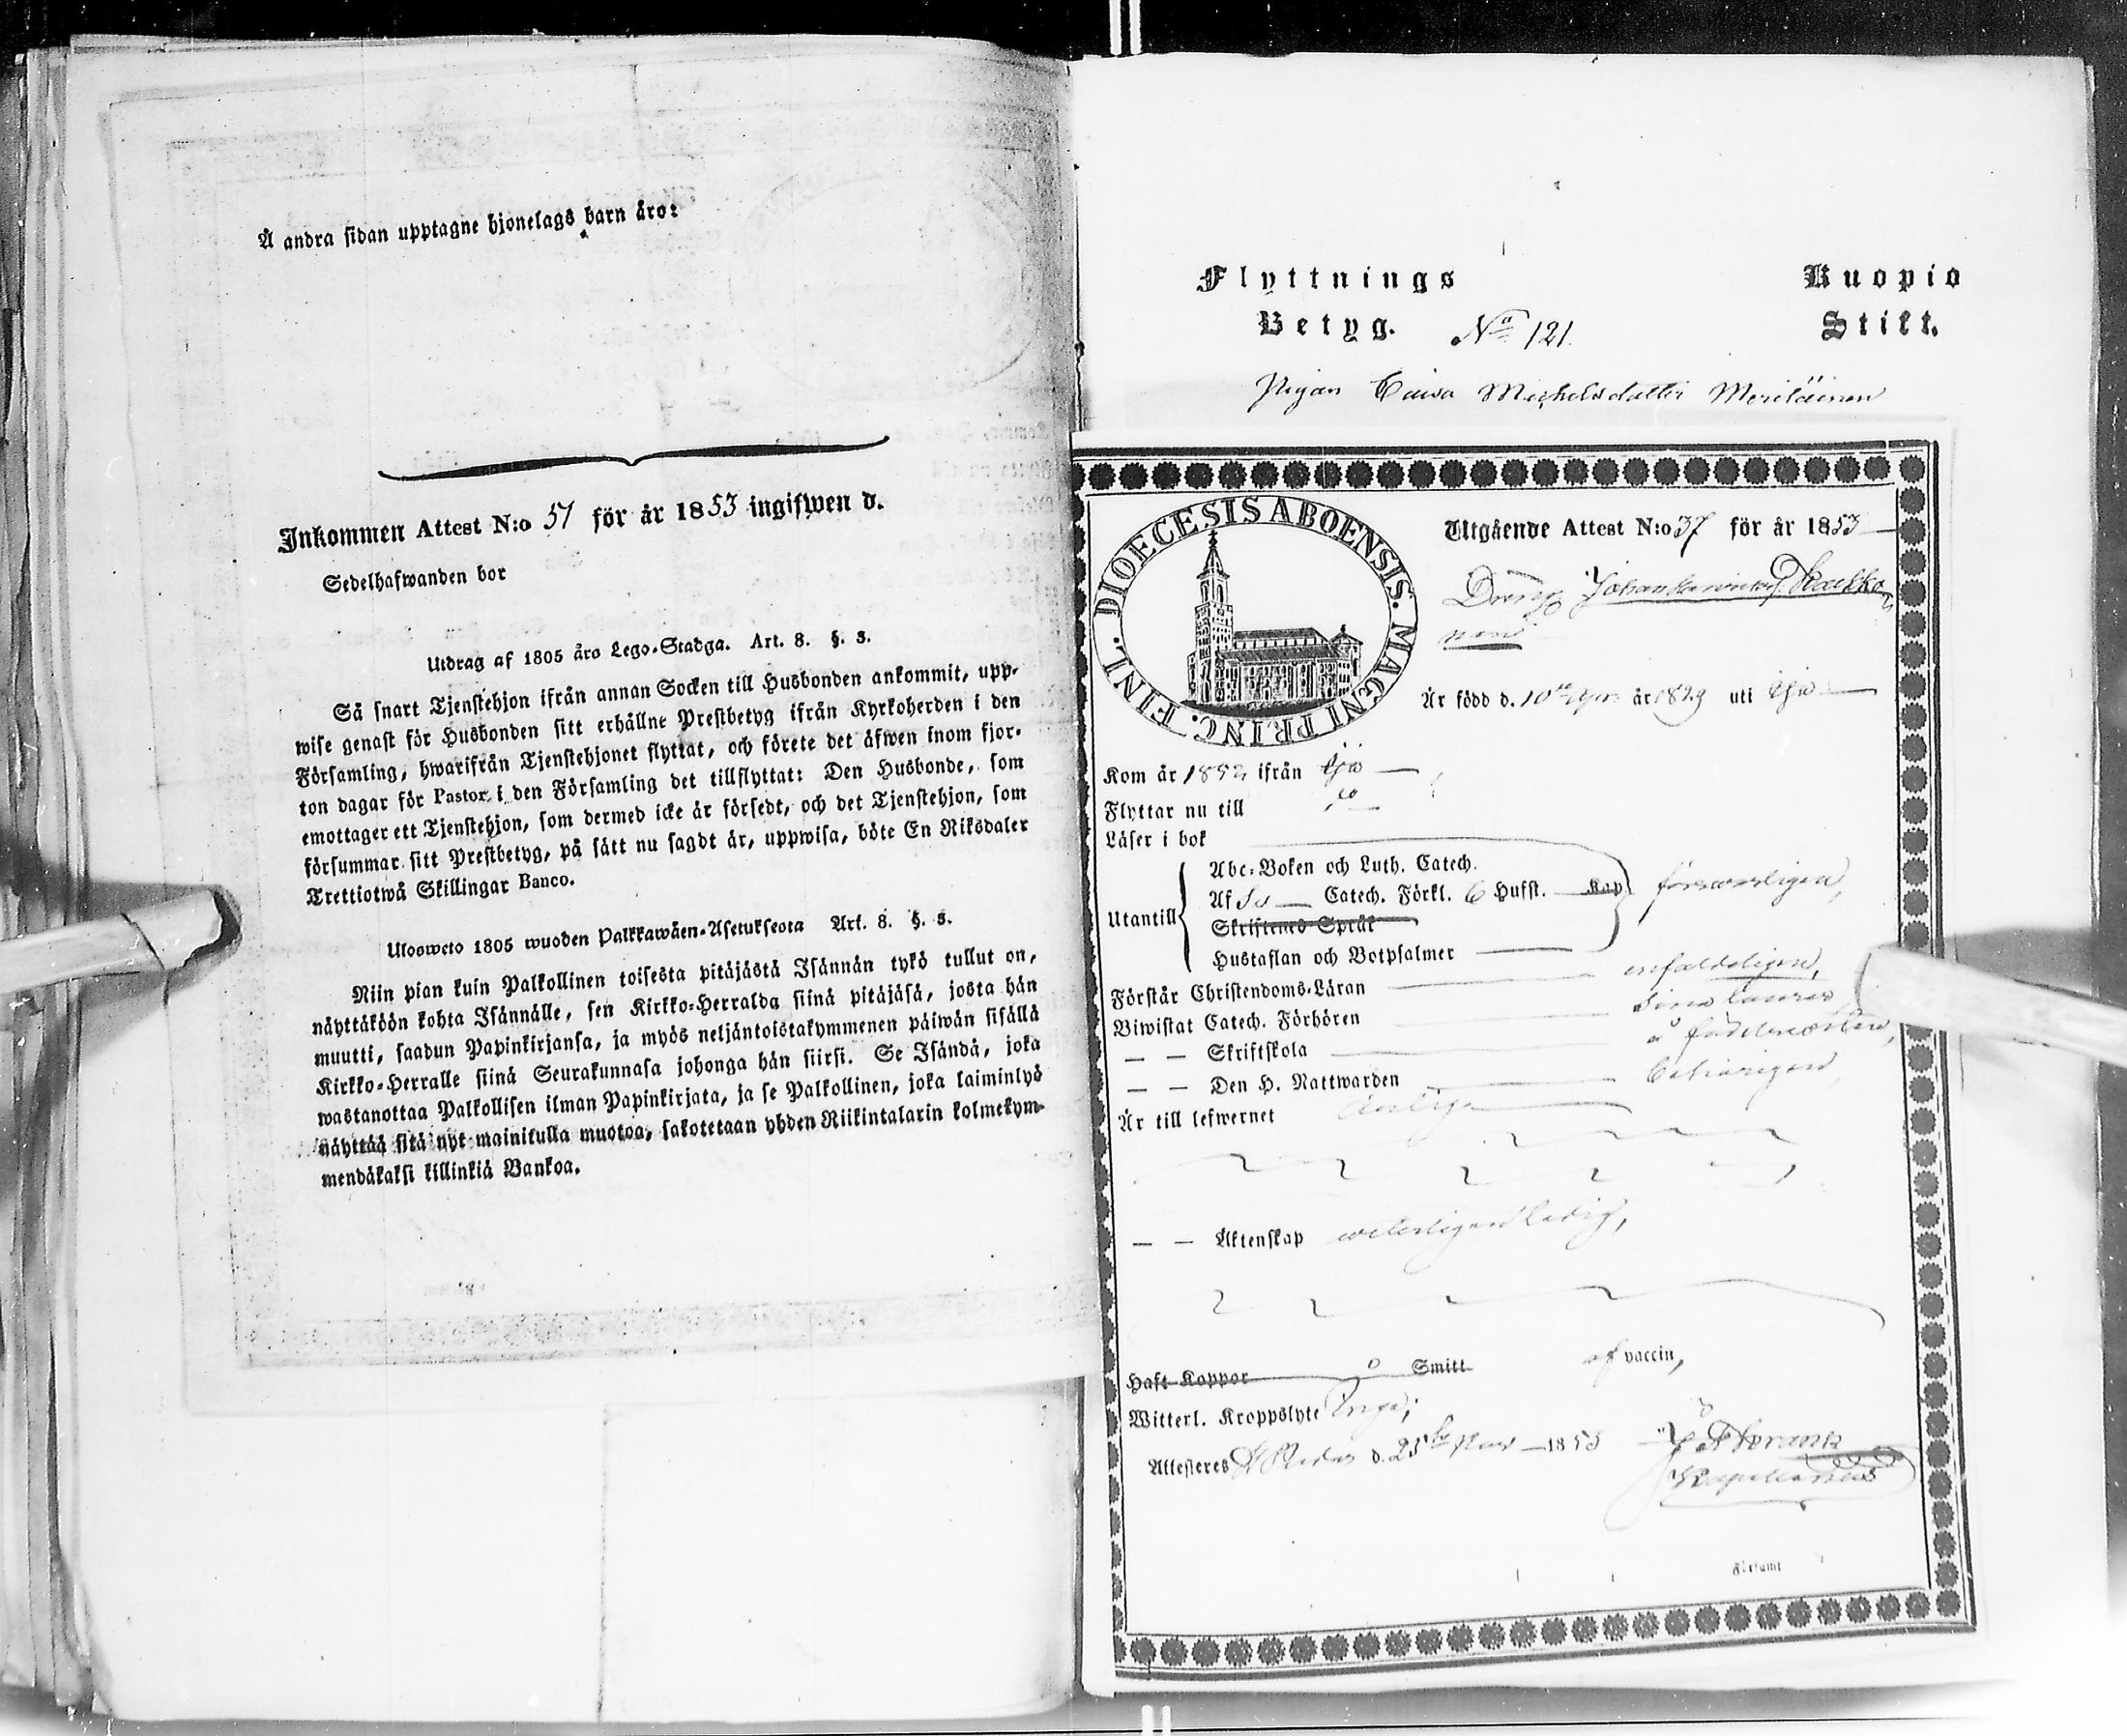 Å andra sidan upptagne hjonelags barn äro:
Inkommen Attest N:o 51 för år 1853 ingifwen d.
Sedelhafwanden bor
Utdrag af 1805 års Lego-Stadga. Art. 8. §. 3.
Så snart Tjenstehjon ifrån annan Socken till Husbonden ankommit, upp-
wise genast för Husbonden sitt erhållne Prestbetyg ifrån Kyrkoherden i den
Församling, hwarifrån Tjenstehjonet flyttat, och förete det äfwen inom fjor-
ton dagar för Pastor i den Församling det tillflyttat: Den Husbonde, som
emottager ett Tjenstehjon, som dermed icke är försedt, och det Tjenstehjon, som
försummar sitt Prestbetyg, på sätt nu sagdt är, uppwisa, böte En Riksdaler
Trettiotwå Skillingar Banco.
Ulosweto 1805 wuoden Palkkawäen-Asetuksesta Art. 8. §. 3.
Niin pian kuin Palkollinen toisesta pitäjästä Isännän tykö tullut on,
näyttäköön kohta Isännälle, sen Kirkko-Herralda siinä pitäjäsä, josta hän
muutti, saadun Papinkirjansa, ja myös neljäntoistakymmenen päiwän sisällä
Kirkko-Herralle siinä Seurakunnasa johonga hän siirsi. Se Isändä, joka
wastanottaa Palkollisen ilman Papinkirjata, ja se Palkollinen, joka laiminlyö
näyttää sitä nyt mainitulla muotoa, sakotetaan yhden Riikintalarin kolmekym-
mendäkaksi killinkiä Bankoa.
Flyttnings
Betyg. No 121.
Kuopio
Stift.
Pigan Caisa Michelsdotter Meriläinen
DIOECESIS ABOENSIS. MAGNI PRINC. FINL.
Utgående Attest N:o 37 för år 1853
Dreng Johan
nen
Är född d. 10 år 1829 uti
Kom år 1852 ifrån
Flyttar nu till
Läser i bok
Abc-Boken och Luth. Catech.
Utantill Af Catech. Förkl. 6 Hufst. Kap. försvarligen,
Skriftenes Språk
Hustaflan och Botpsalmer
Förstår Christendoms-Läran enfaldeligen,
Biwistat Catech. Förhören
— — Skriftskola å födelseorten,
— — Den H. Nattwarden behörigen,
Är till lefwernet ärlig
— — Äktenskap veterligen ledig,
Haft Koppor Smitt af vaccin,
Witterl. Kroppslyte inga;
Attesteres d. 25 1853
Kapellanus
Församl